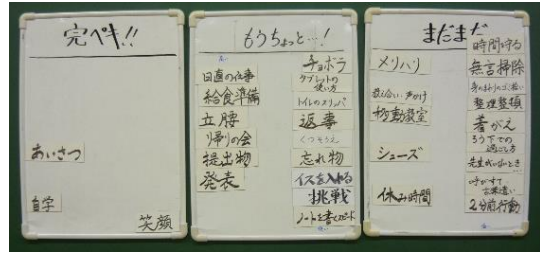 完ペキ!!
あいさつ
自学
笑顔
もうちょっと…!
日直の仕事
給食準備
立腰
帰りの会
提出物
発表
チョボラ
タブレットの
使い方
トイレのスリッパ
返事
くつそうえ
忘れ物
イスを入れる
挑戦
ノートを書くスピード
まだまだ
メリハリ
教え合い・声かけ
移動教室
シューズ
休み時間
時間守る
無言掃除
身のまわりのゴミ拾い
整理整頓
着がえ
ろう下での
過ごし方
先生がいないとき
呼びすて
言葉遣い
2分前行動